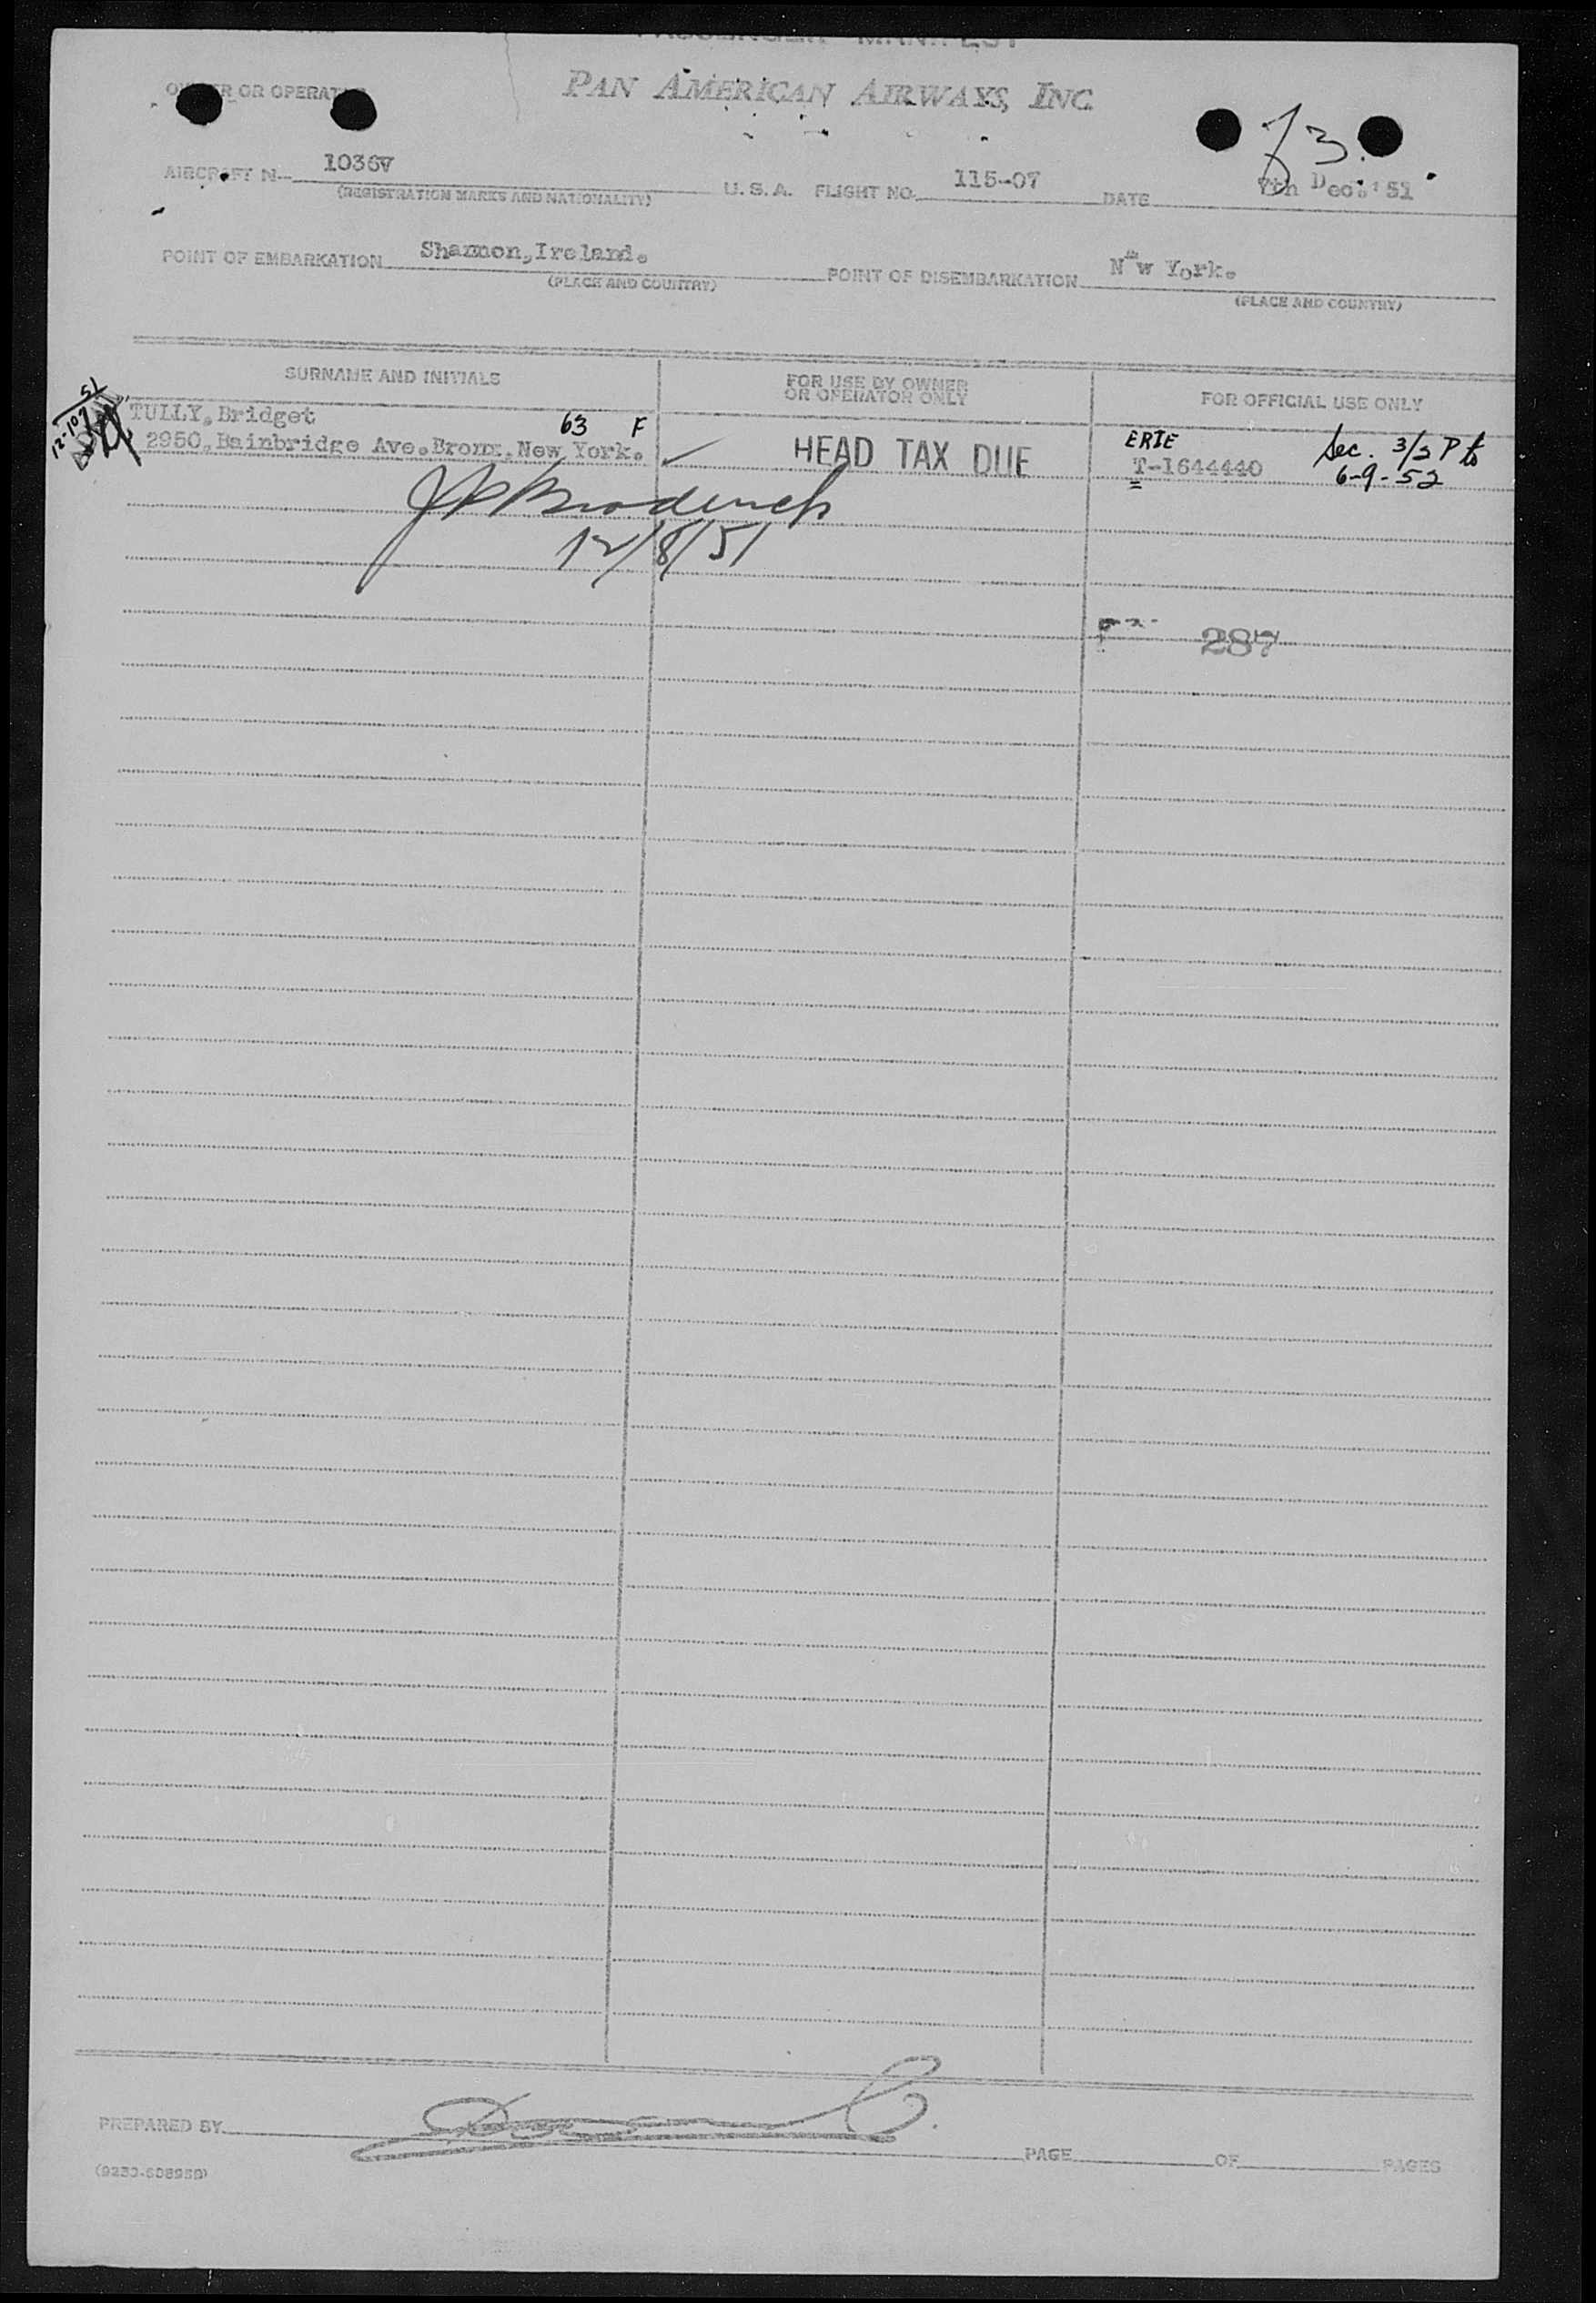 PASSENGER MANIFEST
OWNER OR OPERATOR PAN AMERICAN AIRWAYS, INC.
73.
AIRCRAFT N 1036V U. S. A. FLIGHT NO. 115-07 DATE 7th Dec.'51
(REGISTRATION MARKS AND NATIONALITY)
POINT OF EMBARKATION Shannon,Ireland. POINT OF DISEMBARKATION New York.
(PLACE AND COUNTRY) (PLACE AND COUNTRY)
SURNAME AND INITIALS FOR USE BY OWNER OR OPERATOR ONLY FOR OFFICIAL USE ONLY
TULLY,Bridget 63 F ERIE Sec. 3/2 P to
2950,Bainbridge Ave.Bronx,New York. HEAD TAX DUE T-1644440 6-9-52
J P Broderick
12/8/51
287
PREPARED BY PAGE OF PAGES